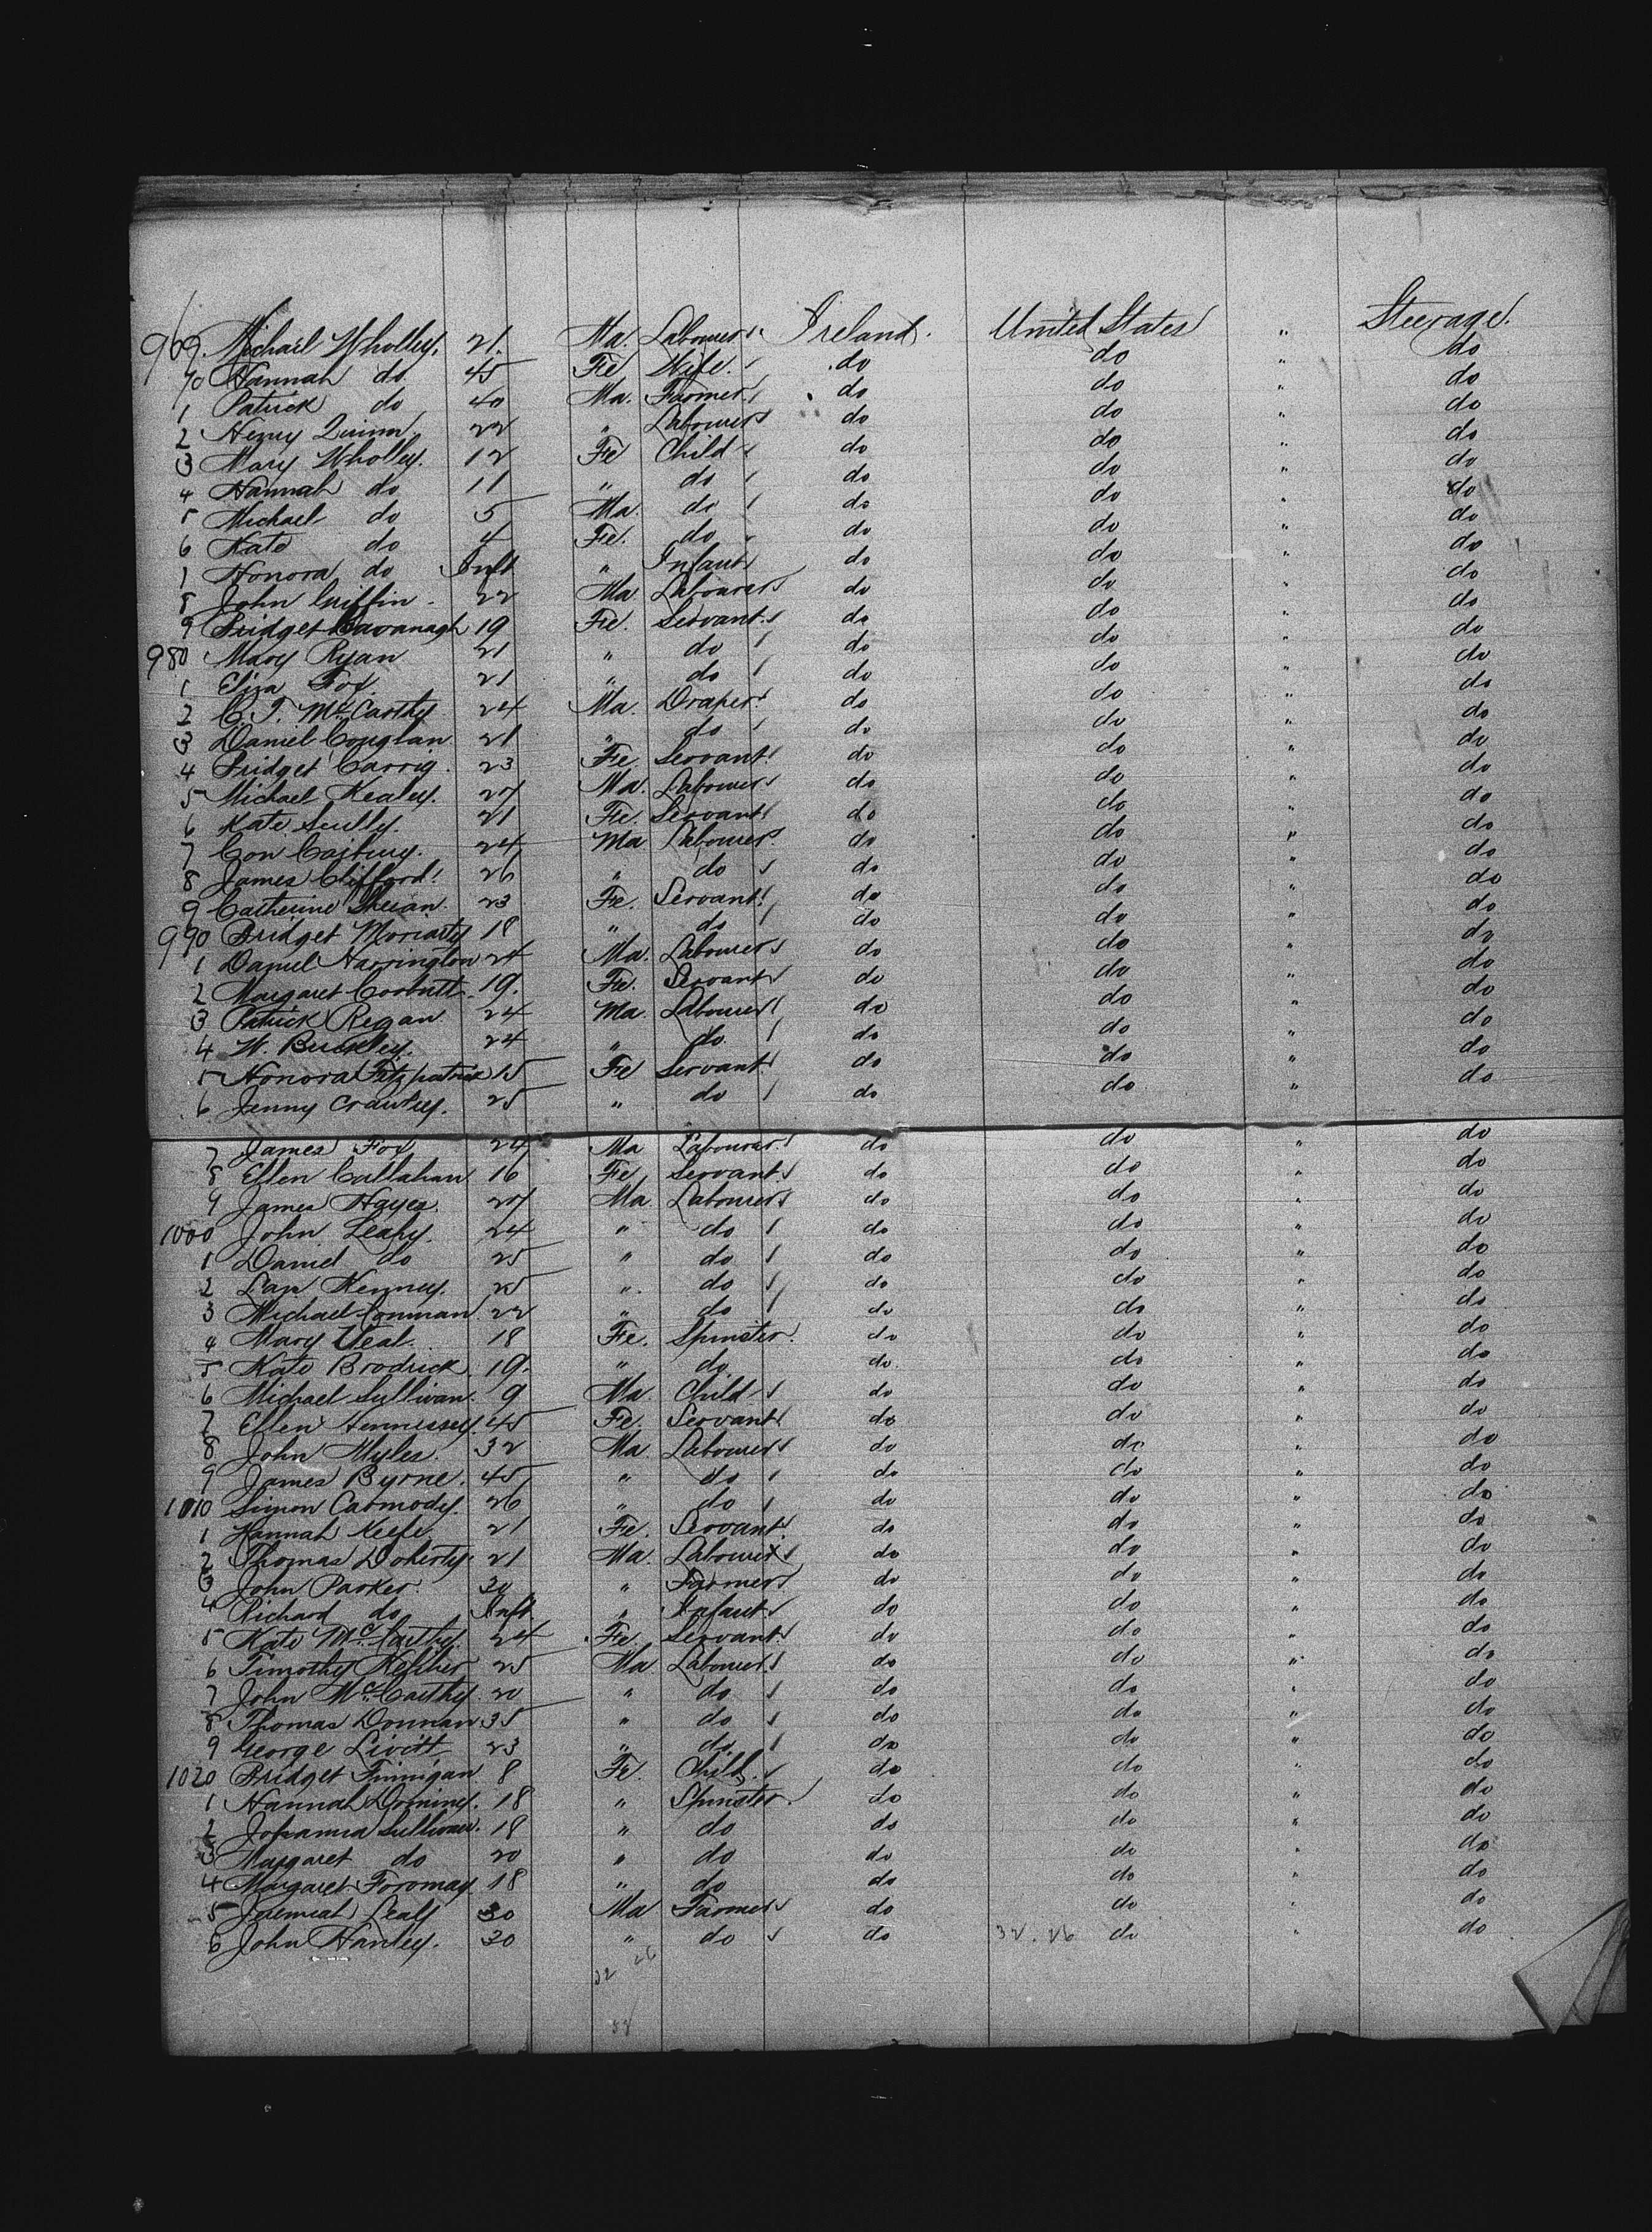 969. Michael Wholley. 21. Ma. Labourer Ireland. United States " Steerage.
70 Hannah do 45 Fe Wife. do do " do
1 Patrick do 40 Ma. Farmer do do " do
2 Henry Quinn 22 " Labourer do do " do
3 Mary Wholley. 12 Fe Child do do " do
4 Hannah do 11 " do do do " do
5 Michael do 5 Ma. do do do " do
6 Kate do 4 Fe. do do do " do
7 Honora do Inft " Infant do do " do
8 John Griffin. 22 Ma Labourer do do " do
9 Bridget Cavanagh 19 Fe. Servant do do " do
980 Mary Ryan 21 " do do do " do
1 Eliza Fox. 21 " do do do " do
2 C. T. McCarthy 24 Ma. Draper do do " do
3 Daniel Couglan 21 " do do do " do
4 Bridget Carrig. 23 Fe. Servant do do " do
5 Michael Kealey. 27 Ma. Labourer do do " do
6 Kate Scully. 21 Fe. Servant do do " do
7 Con 24 Ma Labourer do do " do
8 James Clifford 26 " do do do " do
9 Catherine Shean. 23 Fe. Servant do do " do
990 Bridget Moriarty 18 " do do do " do
1 Daniel Harrington 24 Ma. Labourer do do " do
2 Margaret Corbutt 19. Fe. Servant do do " do
3 Patrick Regan 24 Ma. Labourer do do " do
4 W. Buckley. 24 " do do do " do
5 Honora Fitzpatrick 15 Fe Servant do do " do
6 Jenny Crawley. 25 " do do do " do
7 James Fox 24 Ma Labourer do do " do
8 Ellen Callahan 16 Fe Servant do do " do
9 James Hayes. 27 Ma. Labourer do do " do
1000 John Leahy. 24 " do do do " do
1 Daniel do 25 " do do do " do
2 Kenney. 25 " do do do " do
3 Michael Conman 22 " do do do " do
4 Mary Neal. 18 Fe. Spinster. do do " do
5 Kate Brodrick. 19. " do do do " do
6 Michael Sullivan. 9 Ma. Child do do " do
7 Ellen Hennessey. 45 Fe. Servant do do " do
8 John Myles. 32 Ma Labourer do do " do
9 James Byrne. 45 " do do do " do
1010 Simon Carmody. 26 " do do do " do
1 Hannah Keefe. 21 Fe. Servant do do " do
2 Thomas Doherty. 21 Ma. Labourer do do " do
3 John Parker. 30 " Farmer do do " do
4 Richard do Inft. " Infant do do " do
5 Kate McCarthy. 24 Fe. Servant do do " do
6 Timothy Keliher 25 Ma Labourer do do " do
7 John McCarthy. 20 " do do do " do
8 Thomas Dounan 35 " do do do " do
9 George Livitt 23 " do do do " do
1020 Bridget Finnigan. 8 Fe. Child. do do " do
1 Hannah Dominy. 18 " Spinster. do do " do
2 Johanna Sullivan. 18 " do do do " do
3 Margaret do 20 " do do do " do
4 Margaret Foromay. 18 " do do do " do
5 Jeremiah Lealy 30 Ma Farmer do do " do
6 John Hanley. 30 " do do 32. 26 do " do
32 26